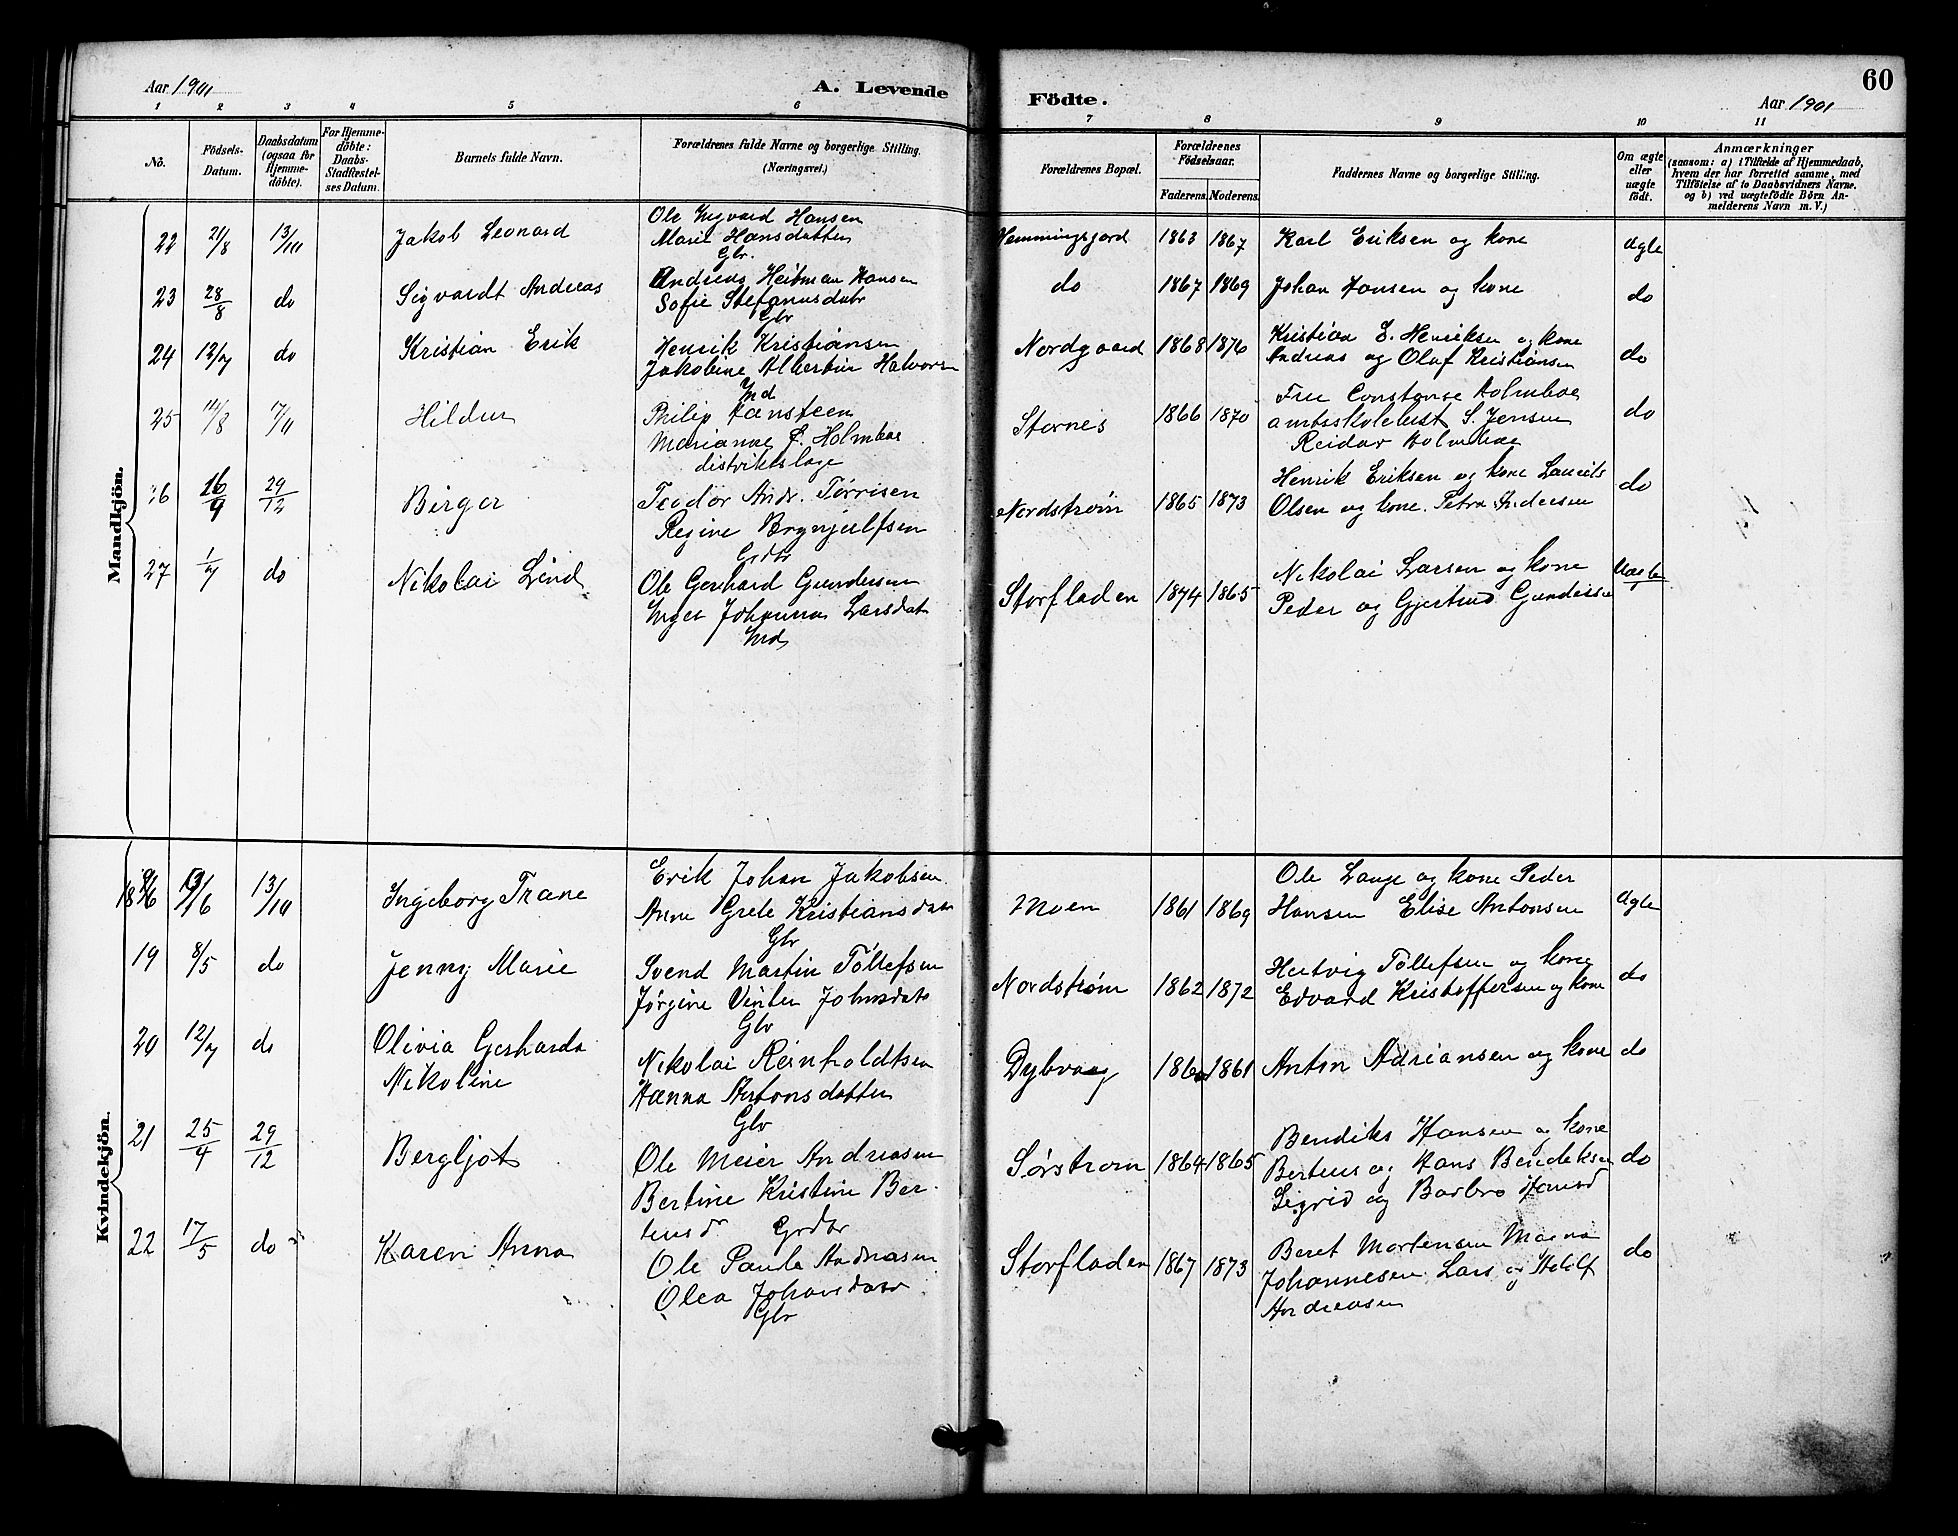 Aar 1901
A. Levende
Födte.
Aar 1901
60
1 2 3 4 5 6 7 8 9 10 11
No.
Födsels-
Datum.
Daabsdatum
(ogsaa for
Hjemme-
döbte).
For Hjemme-
döbte:
Daabs-
Stadfæstel-
ses Datum.
Barnets fulde Navn.
Forældrenes fulde Navne og borgerlige Stilling.
(Næringsvei.)
Forældrenes Bopæl.
Forældrenes
Födselsaar.
Faderens. Moderens.
Faddernes Navne og borgerlige Stilling.
Om ægte
eller
uægte
födt.
Anmærkninger
(saasom: a) i Tilfælde af Hjemmedaab,
hvem der har forrettet samme, med
Tilföielse af to Daabsvidners Navne.
og b) ved uægtefödte Börn An-
melderens Navn m. V.)
Mandkjön.
22 21/8 13/10 Jakob Leonard
Ole Ingvard Hansen
Marie Hansdatter
Gbr.
Hemmingsfjord 1863 1867 Karl Eriksen og kone Ægte
23 28/8 do Sigvardt Andreas
Andreas Heitman Hansen
Sofie Stefanusdatr
Gbr
do 1867 1869 Johan Hansen og kone do
24 12/7 do Kristian Erik
Henrik Kristiansen
Jakobine Albertine Halvorsen
Ind
Nordgaard 1868 1876
Kristian E. Henriksen og kone
Andreas og Oluf Kristiansen
do
25 14/8 17/11 Hildur
Philip Hansteen
Marianne F. Holmboe
distriktslæge
Stornes 1866 1870
Fru Constanse Holmboe
amtsskolebest S. Jensen
Reidar Holmboe
do
26 16/9 29/12 Birger
Teodor Andr. Tørrisen
Regine Brynjulfsen
Grdbr
Nordstrøm 1865 1873
Henrik Eriksen og kone Laurits
Olsen og kone. Petra Andersen
do
27 1/7 do Nikolai Lind
Ole Gerhard Gundersen
Inger Johanna Larsdatr
Ind
Storfladen 1874 1865
Nikolai Larsen og kone
Peder og Gjertrud Gundersen
Uægte
Kvindekjön.
18 19/6 13/10 Ingeborg Trane
Erik Johan Jakobsen
Anne Grete Kristiansdatr
Gbr
Moen 1861 1869
Ole Lange og kone Peder
Hansen Elise Antonsen
Ægte
19 8/5 do Jenny Marie
Svend Martin Tollefsen
Jørgine Vinter Johnsdatr
Gbr
Nordstrøm 1862 1872
Hertvig Tollefsen og kone
Edvard Kristoffersen og kone
do
20 12/7 do Olivia Gerharda
Nikoline
Nikolai Reinholdtsen
Hanna Antonsdatter
Gbr
Dybvaag 1860 1861 Anton Adriansen og kone do
21 25/9 29/12 Bergljot
Ole Meier Andreasen
Bertine Kristine Ber-
tensd Grdbr
Sørstrøm 1864 1865
Bendiks Hansen og kone
Berteus og Hans Bendeksen
Sigrid og Barbro Hansd
do
22 17/5 do Karen Anna
Ole Paul Andreasen
Olea Johansdatr
Gbr
Storfladen 1867 1873
Beret Mortensen Magna
Johannesen Lars og Adolf
Andreasen
do